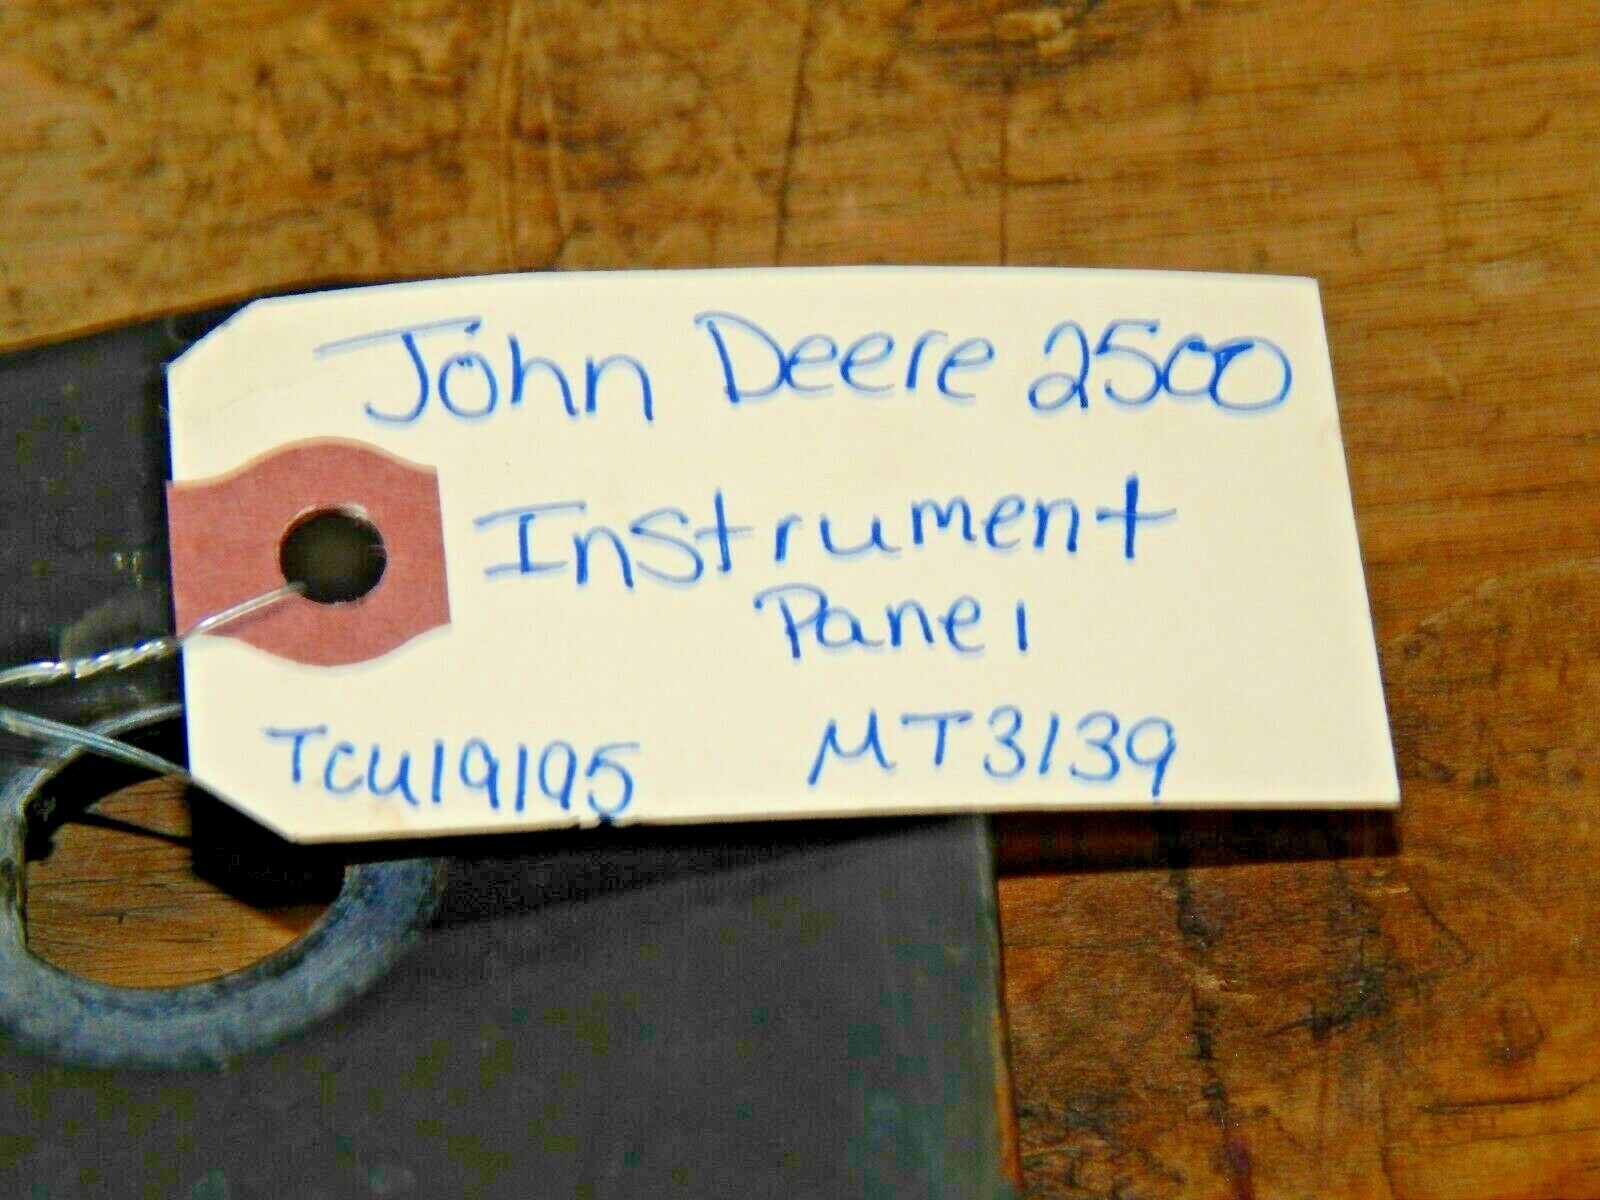 John Deere 2500
Instrument
Panel
TCU19195 MT3139